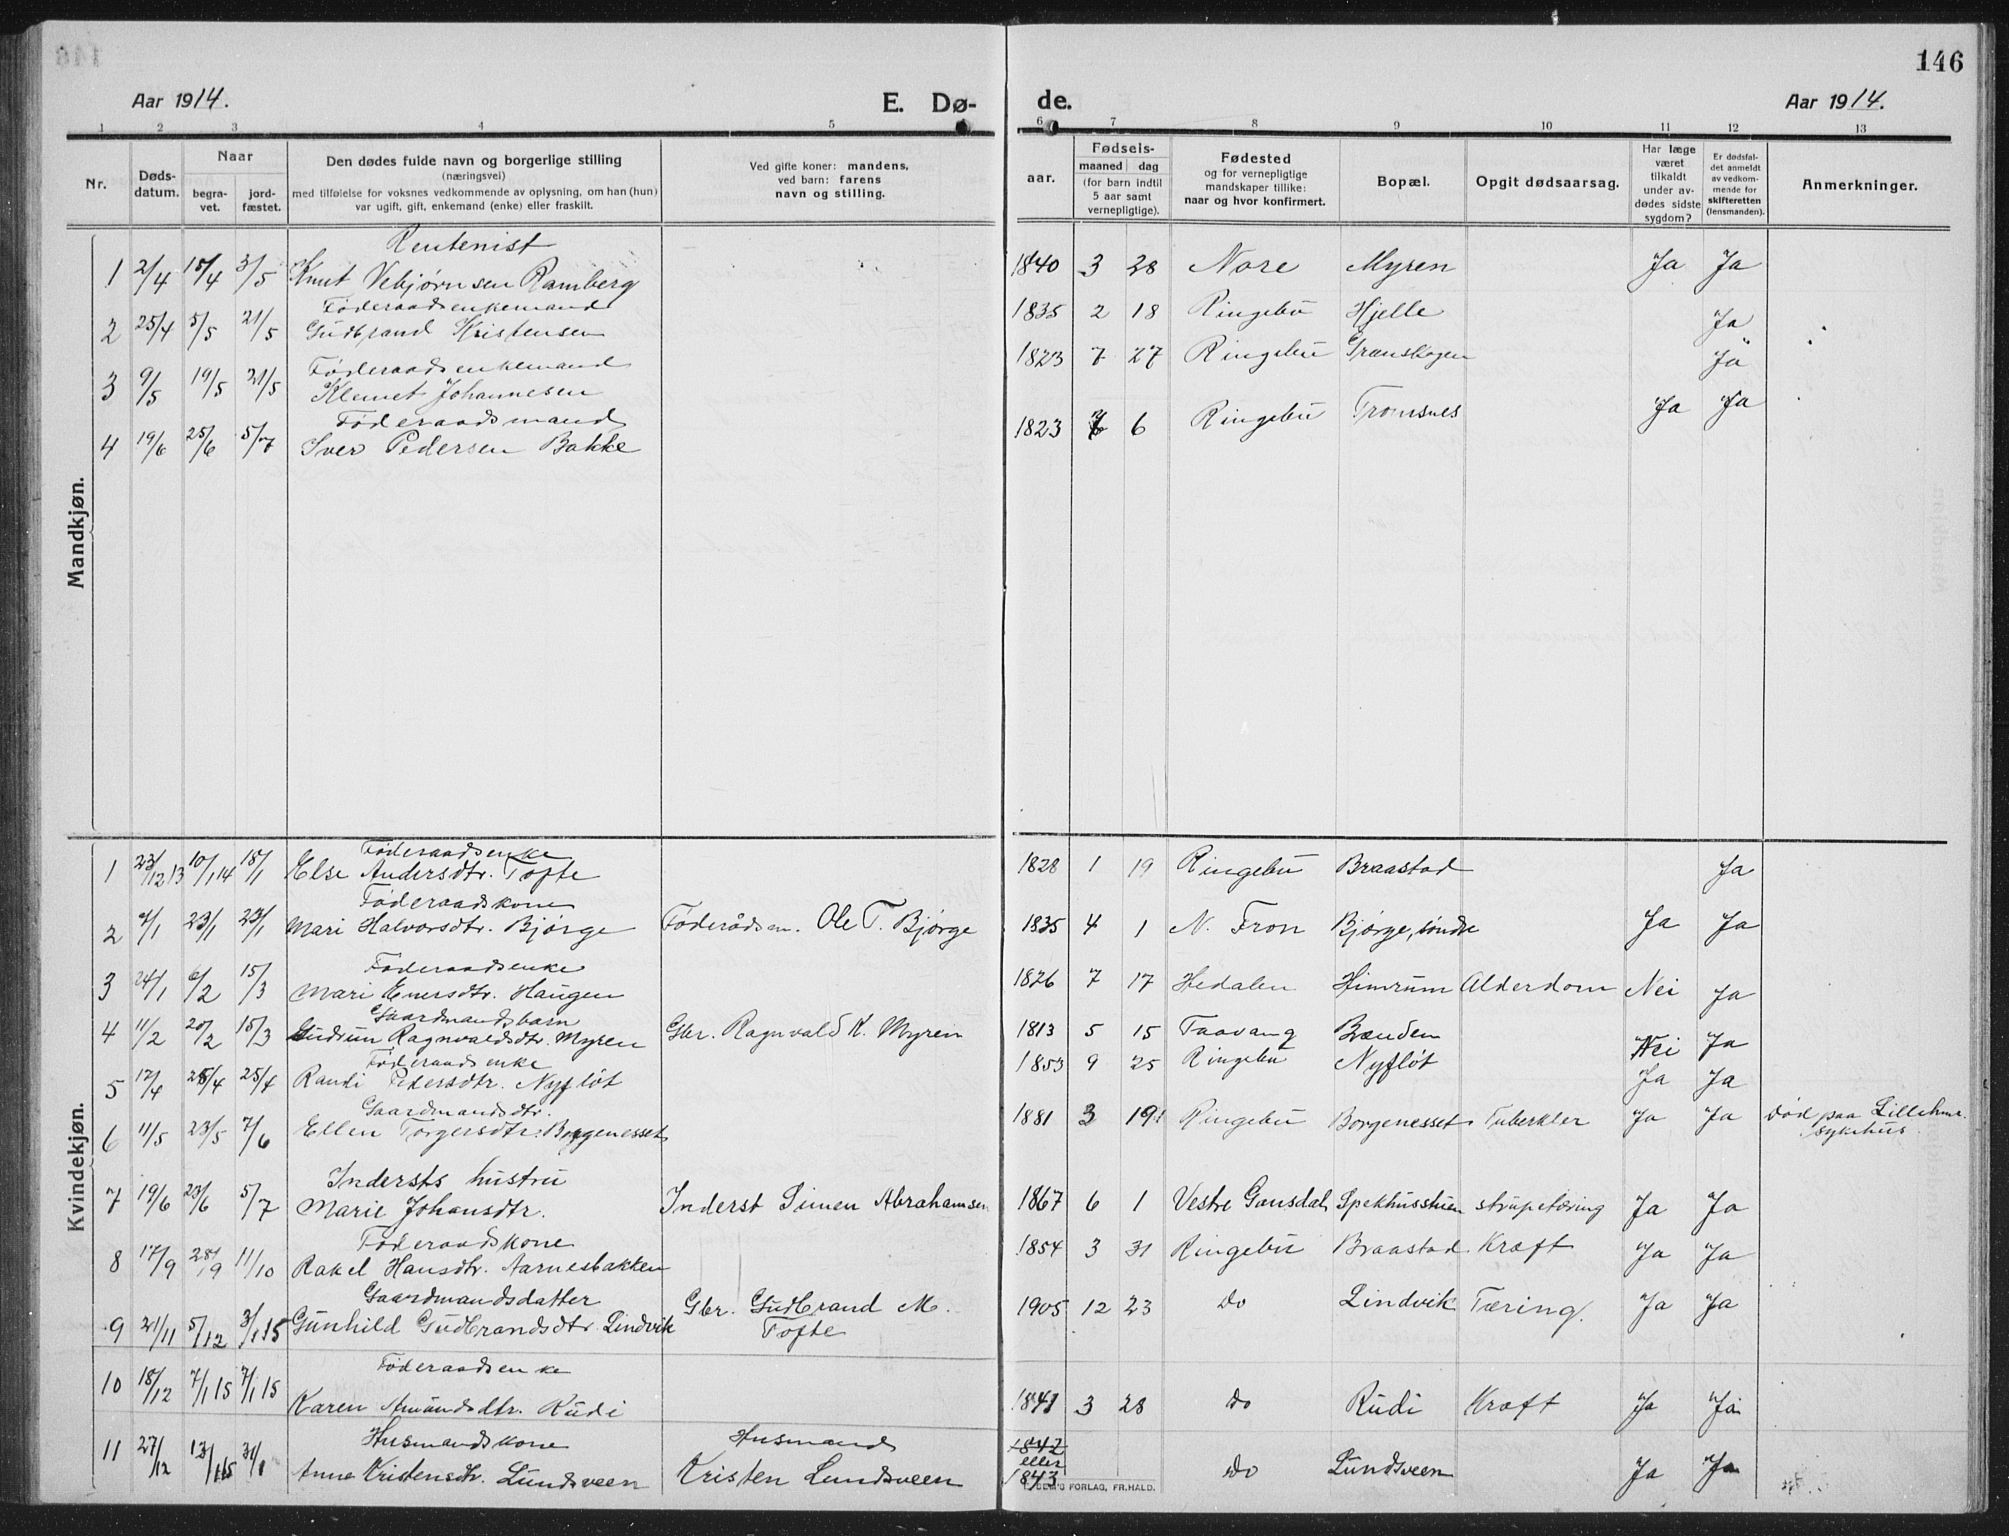 146
Aar 1914.
E. Dø-
de.
Aar 1914.
1 2 3 4 5 6 7 8 9 10 11 12 13
Nr.
Døds-
datum.
Naar
begra-
vet.
jord-
fæstet.
Den dødes fulde navn og borgerlige stilling
(næringsvei)
med tilføielse for voksnes vedkommende av oplysning, om han (hun)
var ugift, gift, enkemand (enke) eller fraskilt.
Ved gifte koner: mandens,
ved barn: farens
navn og stilling.
Fødsels-
aar.
maaned dag
(for barn indtil
5 aar samt
vernepligtige).
Fødested
og for vernepligtige
mandskaper tillike:
naar og hvor konfirmert.
Bopæl.
Opgit dødsaarsag.
Har læge
været
tilkaldt
under av-
dødes sidste
sygdom?
Er dødsfal-
det anmeldt
av vedkom-
mende for
skifteretten
(lensmanden).
Anmerkninger.
Mandkjøn.
Rentenist
1 2/4 15/4 3/5 Knut Vebjørnsen Ramberg 1840 3 28 Nore Myren Ja Ja
Føderaadsenkemand
2 25/4 5/5 21/5 Gudbrand Kristensen 1835 2 18 Ringebu Hjelle Ja
Føderaadsenkemand
3 9/5 19/5 21/5 Klemet Johannesen 1823 7 27 Ringebu Granskogen Ja
Føderaadsmand
4 19/6 25/6 5/7 Iver Pedersen Bakke 1823 6 Ringebu Tromsnes Ja Ja
Kvindekjøn.
Føderaadsenke
1 23/12 13 10/1 14 18/1 Else Andersdtr. Tofte 1828 1 19 Ringebu Braastad Ja
Føderaadskone
2 7/1 23/1 23/1 Mari Halvorsdtr. Bjørge Føderådsm. Ole T. Bjørge 1835 4 1 N. Fron Bjørge, søndre Ja Ja
Føderaadsenke
3 24/1 6/2 15/3 Mari Enersdtr. Haugen 1826 7 17 Hedalen Himrum Alderdom Nei Ja
Gaardmandsbarn
4 11/2 20/2 15/3 Gudrun Ragnvaldsdtr. Myren Gbr. Ragnvald K. Myren 1813 5 15 Faavang Brænden Nei Ja
Føderaadsenke
5 17/4 25/4 25/4 Randi Pedersdtr. Nyfløt 1853 9 25 Ringebu Nyfløt Ja Ja
Gaardmandsdtr.
6 11/5 23/5 7/6 Ellen Torgersdtr. Borgenesset 1881 3 19 Ringebu Borgenesset Tuberkler Ja Ja Død paa Lillehmr.
sykehus.
Indersts hustru
7 19/6 23/6 5/7 Marie Johansdtr. Inderst Simen Abrahamsen 1867 6 1 Vestre Gausdal Spekhusstuen strupetæring Ja Ja
Føderaadskone
8 17/9 28/9 11/10 Rakel Hansdtr. Aarnesbakken 1854 3 31 Ringebu Braastad Kræft Ja Ja
Gaardmandsdatter Gbr. Gudbrand M.
9 21/11 5/12 3/1 15 Gunhild Gudbrandsdtr. Lindvik Tofte 1905 12 23 Do Lindvik Tæring. Ja Ja
Føderaadsenke
10 18/12 7/1 15 7/1 15 Karen Amundsdtr. Rudi 1841 3 28 Do Rudi Kræft Ja Ja
Husmandskone Husmand 1842
eller
11 27/12 13/1 15 31/1 Anne Kristensdtr. Lundsveen Kristen Lundsveen 1843 Do Lundsveen Ja Ja
FORLAG, FR.HALD.